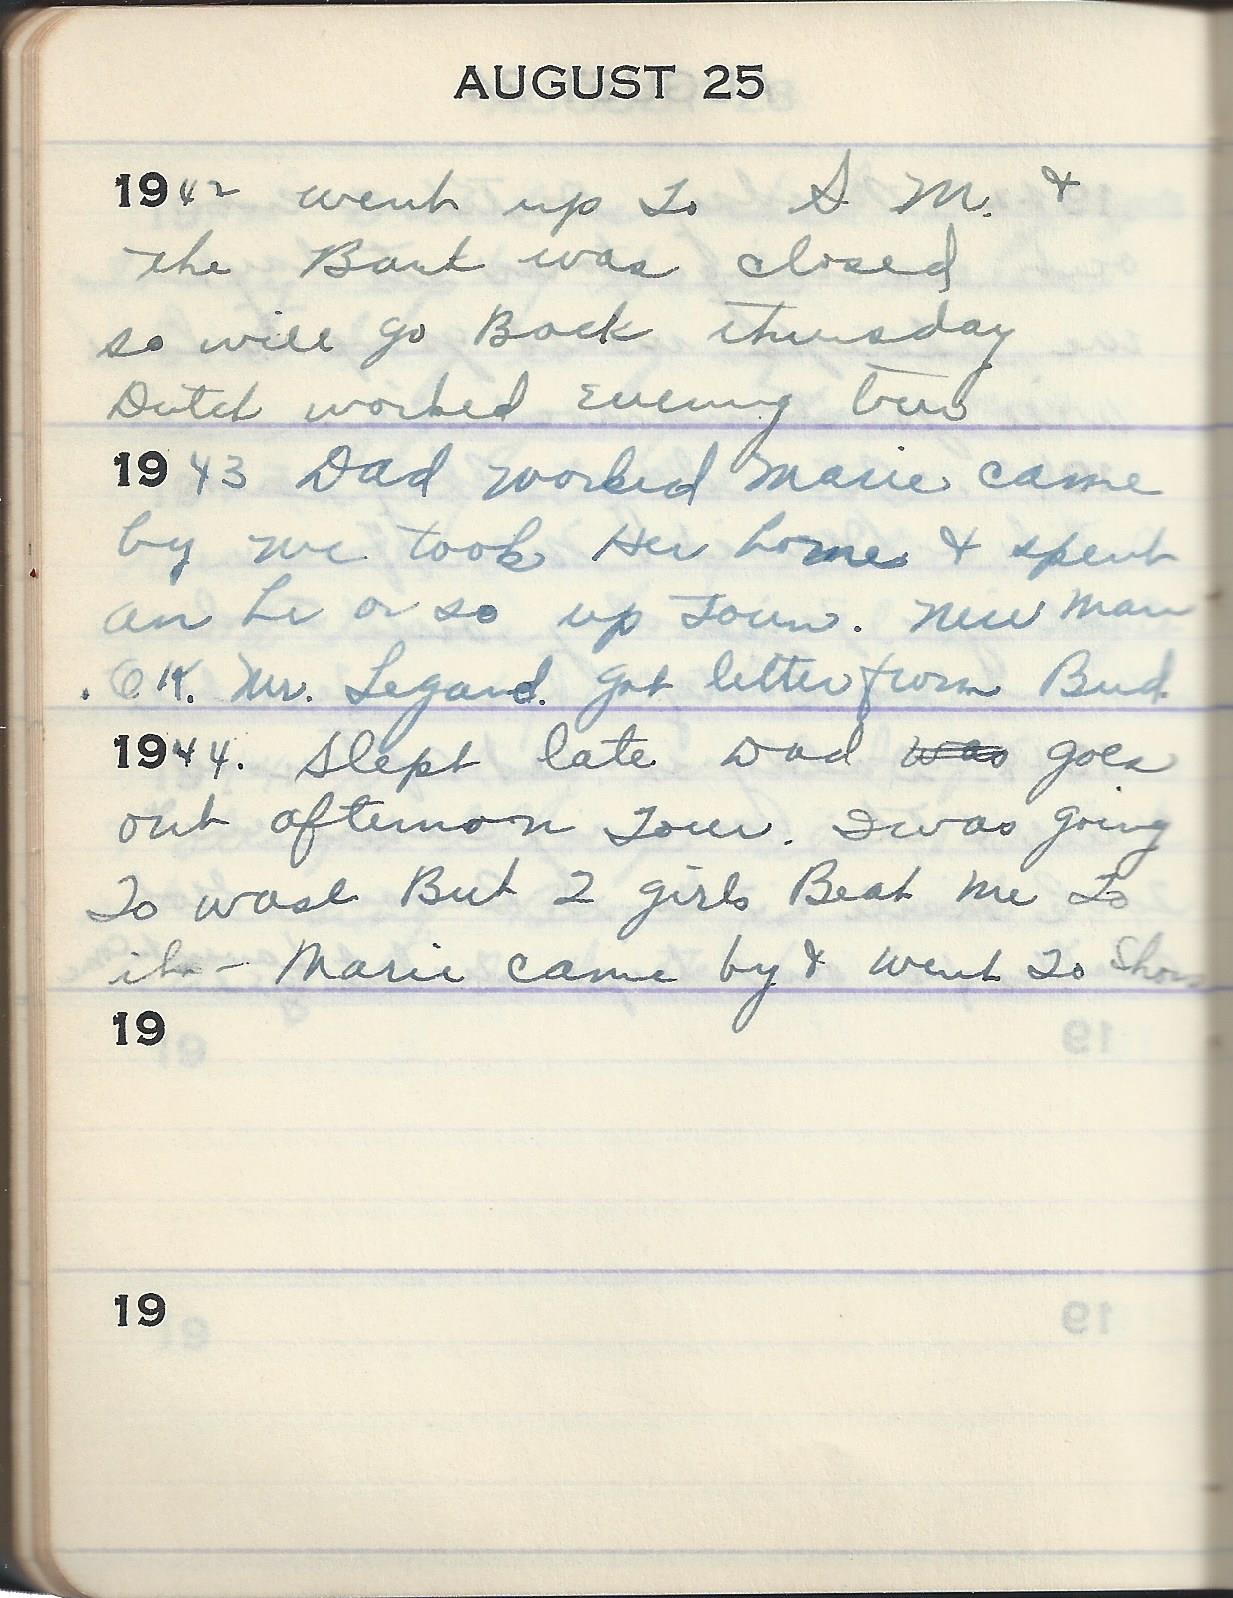 AUGUST 25
1942 went up To S. M. &
The Bank was closed
so will go Back thursday
Dutch worked Evening
1943 Dad worked Marie came
by we took Her home & spent
an hr or so up Town. New Man
O.K. Mr. Legand. Got letter from Bud.
1944. Slept late Dad was goes
out afternoon Tour. I was going
To wash But 2 girls Beat me To
it - Marie came by & went To Show
19
19